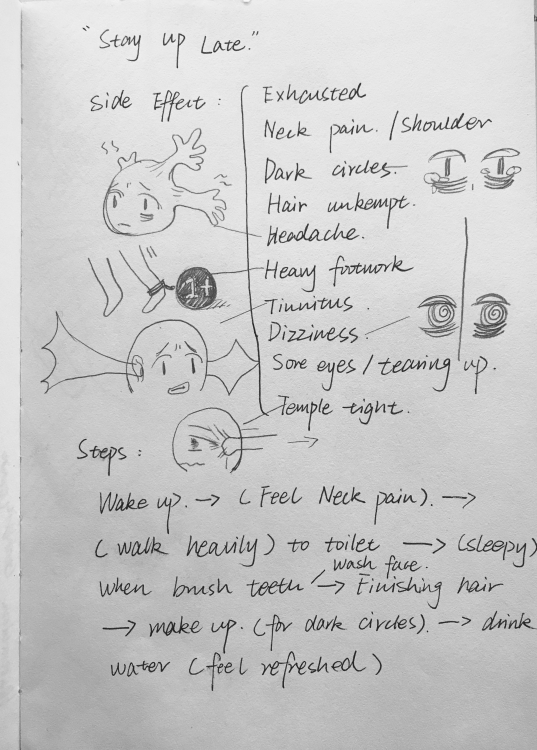 "Stay up Late."
Side Effect :
Exhausted
Neck pain. / Shoulder
Dark circles.
Hair unkempt.
Headache.
Heavy footwork
1+
Tinnitus.
Dizziness.
Sore eyes / tearing up.
Temple tight.
Steps :
Wake up. → (Feel Neck pain). →
(walk heavily) to toilet → (sleepy)
wash face.
when brush teeth / → Finishing hair
→ make up. (for dark circles). → drink
water (feel refreshed)